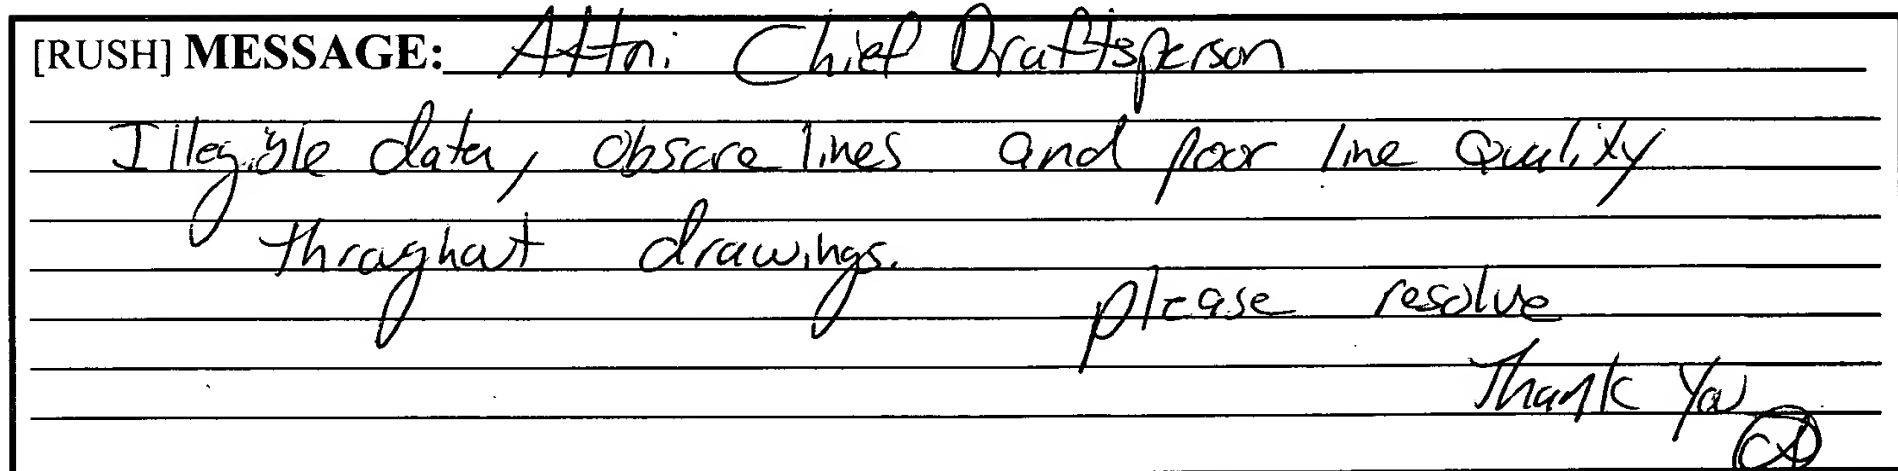 [RUSH] MESSAGE: Attn: Chief Draftsperson
Illegible data, obscure lines and poor line quality
throughout drawings.
please resolve
Thank You